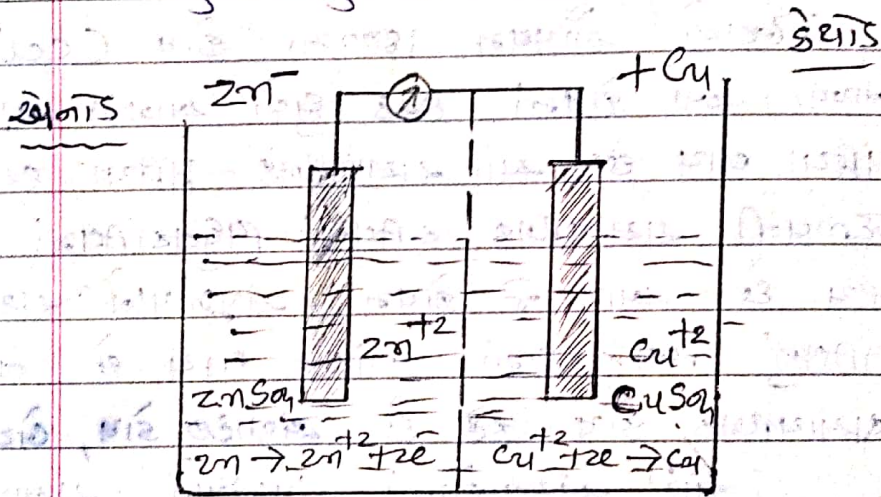 કેથોડ
Zn⁻ +Cu
એનોડ
Zn⁺² Cu⁺²
ZnSO₄ CuSO₄
Zn → Zn⁺² + 2e⁻ Cu⁺² + 2e → Cu